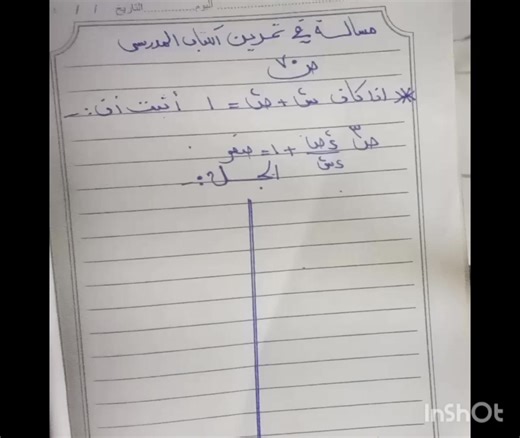 اليوم التاريخ / /
مسألة في تمرين الكتاب المدرسي
ص ٧٠
* اذا كان س٢ + ص٢ = ١ أثبت أن :-
ص٣ ء٢ص/ءس٢ + ١ = صفر
الحل :-
InShOt